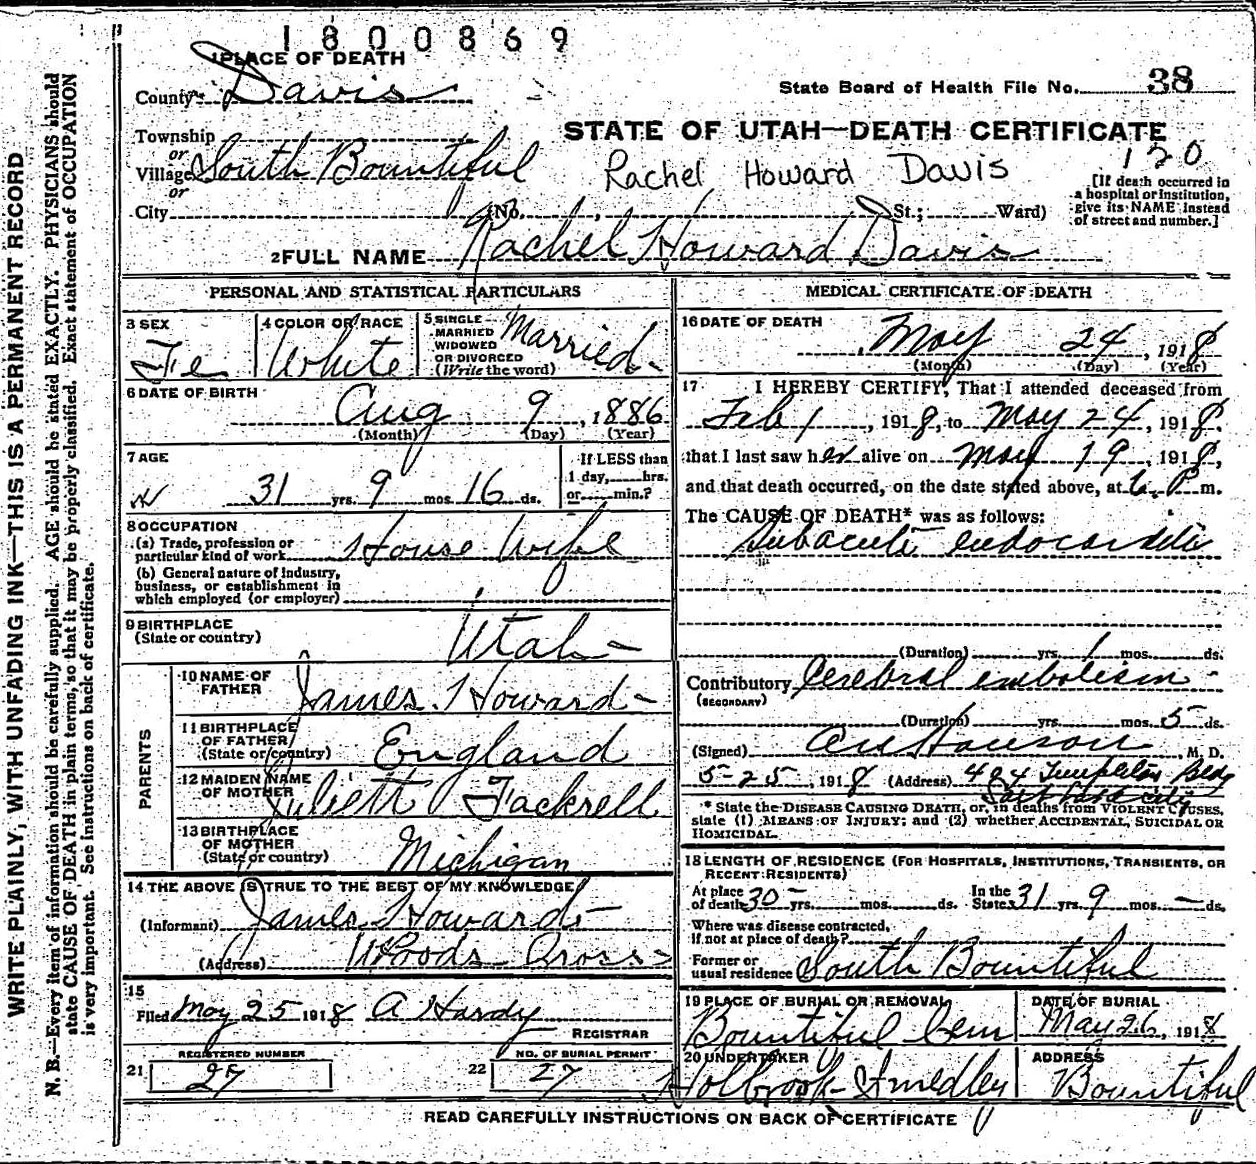 1800869
1 PLACE OF DEATH
County Davis
State Board of Health File No. 38
Township
or
Village South Bountiful
or
STATE OF UTAH—DEATH CERTIFICATE
120
Rachel Howard Davis
City (No. , St.; Ward)
[If death occurred in
a hospital or institution,
give its NAME instead
of street and number.]
2 FULL NAME Rachel Howard Davis
PERSONAL AND STATISTICAL PARTICULARS
3 SEX
Fe
4 COLOR OR RACE
White
5 SINGLE
MARRIED
WIDOWED
OR DIVORCED
(Write the word)
Married
6 DATE OF BIRTH
Aug 9, 1886
(Month) (Day) (Year)
7 AGE
31 yrs. 9 mos. 16 ds.
If LESS than
1 day, hrs.
or min.?
8 OCCUPATION
(a) Trade, profession or
particular kind of work House Wife
(b) General nature of industry,
business, or establishment in
which employed (or employer)
9 BIRTHPLACE
(State or country)
Utah
PARENTS
10 NAME OF
FATHER
James Howard
11 BIRTHPLACE
OF FATHER
(State or country)
England
12 MAIDEN NAME
OF MOTHER
Juliett Fackrell
13 BIRTHPLACE
OF MOTHER
(State or country)
Michigan
14 THE ABOVE IS TRUE TO THE BEST OF MY KNOWLEDGE
(Informant) James Howard
(Address) Woods Cross
15
Filed May 25 1918 A Hardy
REGISTRAR
REGISTERED NUMBER
21 27
NO. OF BURIAL PERMIT
22 27
MEDICAL CERTIFICATE OF DEATH
16 DATE OF DEATH
May 24, 1918
(Month) (Day) (Year)
17 I HEREBY CERTIFY, That I attended deceased from
Feb 1, 1918, to May 24, 1918.
that I last saw her alive on May 19, 1918,
and that death occurred, on the date stated above, at 6 P m.
The CAUSE OF DEATH* was as follows:
Subacute endocarditis
(Duration) yrs. 1 mos. ds.
Contributory Cerebral embolism
(SECONDARY)
(Duration) yrs. mos. 5 ds.
(Signed) M. D.
5-25, 1918 (Address) 404 Templeton Bldg
Salt Lake City
* State the DISEASE CAUSING DEATH, or, in deaths from VIOLENT CAUSES,
state (1) MEANS OF INJURY; and (2) whether ACCIDENTAL, SUICIDAL OR
HOMICIDAL.
18 LENGTH OF RESIDENCE (FOR HOSPITALS, INSTITUTIONS, TRANSIENTS, OR
RECENT RESIDENTS)
At place
of death 30 yrs. mos. ds.
In the
State 31 yrs. 9 mos. — ds.
Where was disease contracted,
if not at place of death?
Former or
usual residence South Bountiful
19 PLACE OF BURIAL OR REMOVAL
Bountiful Cem
DATE OF BURIAL
May 26, 1918
20 UNDERTAKER
Holbrook Smedley
ADDRESS
Bountiful
READ CAREFULLY INSTRUCTIONS ON BACK OF CERTIFICATE
WRITE PLAINLY, WITH UNFADING INK—THIS IS A PERMANENT RECORD
N. B.—Every item of information should be carefully supplied. AGE should be stated EXACTLY. PHYSICIANS should
state CAUSE OF DEATH in plain terms, so that it may be properly classified. Exact statement of OCCUPATION
is very important. See instructions on back of certificate.